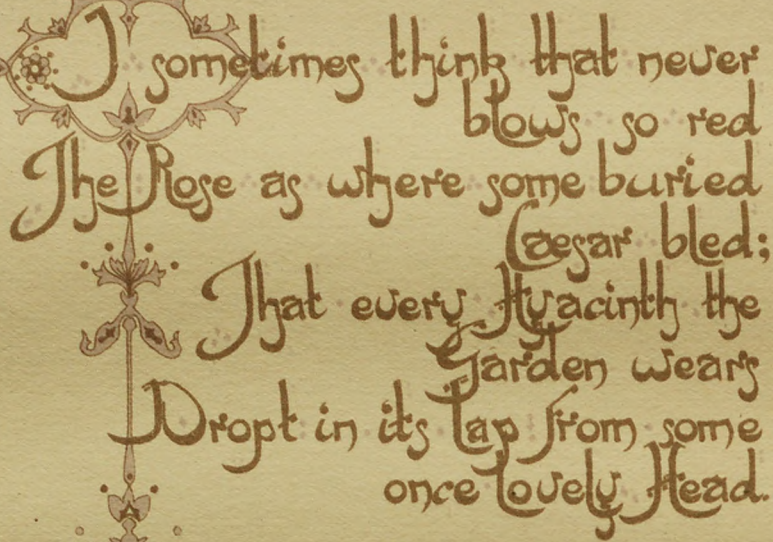 I sometimes think that never
blows so red
The Rose as where some buried
Caesar bled;
That every Hyacinth the
Garden wears
Dropt in its Lap from some
once Lovely Head.